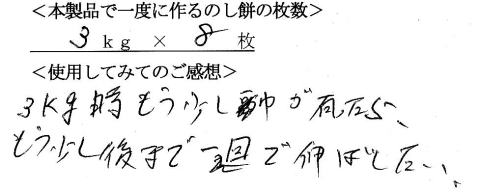 <本製品で一度に作るのし餅の枚数>
3 kg × 8 枚
<使用してみてのご感想>
3Kg時もう少し巾が
もう少し後まで一回で伸ばしたい、